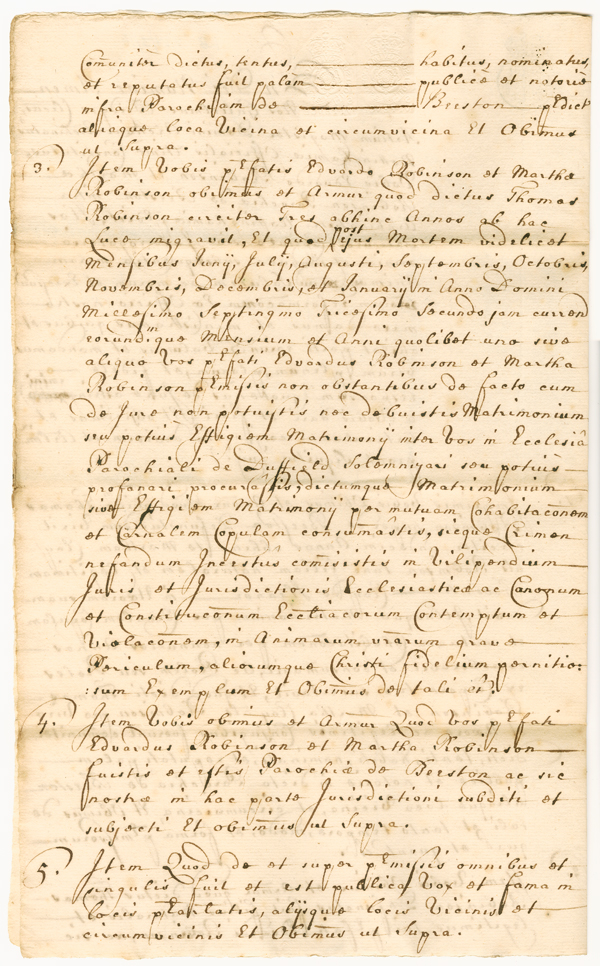 Comuniter dictus, tentus, habitus, nominatus,
et reputatus fuit palam publicè et notoriè
infra Parochiam de Beeston pred̄ict
aliaque loca Vicina et circumvicina Et Obijmus
ut Supra.
3. Item Vobis prēfatis Edvardo Robinson et Marthæ
Robinson obijmus et Artmur quod dictus Thomas
Robinson circiter Tres abhinc Annos ab hac
Luce migravit, Et quod post ejus Mortem videlicet
Mensibus Junij, Julij, Augusti, Septembris, Octobris,
Novembris, Decembris, et January in Anno Domini
Millesimo Septingmo Tricesimo Secundo jam currend
eorundmque Mensium et Anni quolibet uno sive
aliquo Vos prēfati Edvardus Robinson et Martha
Robinson prēmissis non obstantibus de facto cum
de Jure non potuistis nec debuistis Matrimonium
seu potius Effigiem Matrimonij inter Vos in Ecclesiâ
Parochiali de Duffield Solemnizari seu potius
profanari procurastis, dictumque Matrimonium
sive Effigiem Matrimonij per mutuam Cohabitac̄onem
et Carnalem Copulam consummâstis, sicque Crimen
nefandum Incestûs com̄isistis in Vilipendium
Juris et Jurisdictionis Ecclesiasticæ ac Canonum
et Constituc̄onum Eccl̄iacorum Contemptum et
Violac̄onem, in Animarum vr̄arum grave
Periculum, aliorumque Christi fidelium pernitio=
:sum Exemplum Et Obijmus de tali &c.
4. Item Vobis obijmus et Artmur Quod Vos prēfati
Edvardus Robinson et Martha Robinson
fuistis et estis Parochiæ de Beeston ac sic
nostræ in hac parte Jurisdictioni subditi et
subjecti Et obijmus ut Supra.
5. Item Quod de et super prēmissis omnibus et
singulis fuit et est publica Vox et fama in
locis prēallatis, alijsque locis Vicinis et
circumvicinis Et Obijmus ut Supra.